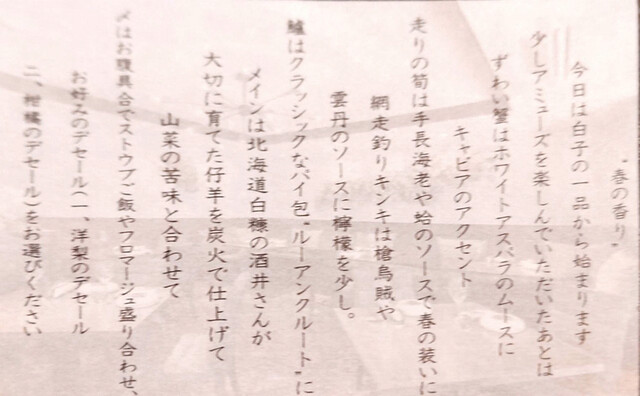 "春の香り"
今日は白子の一品から始まります
少しアミューズを楽しんでいただいたあとは
ずわい蟹はホワイトアスパラのムースに
キャビアのアクセント
走りの筍は手長海老や蛤のソースで春の装いに
網走釣りキンキは槍烏賊や
雲丹のソースに檸檬を少し。
鱸はクラッシックなパイ包"ルーアンクルート"に
メインは北海道白糠の酒井さんが
大切に育てた仔羊を炭火で仕上げて
山菜の苦味と合わせて
〆はお腹具合でストウブご飯やフロマージュ盛り合わせ、
お好みのデセール(一、洋梨のデセール
二、柑橘のデセール)をお選びください